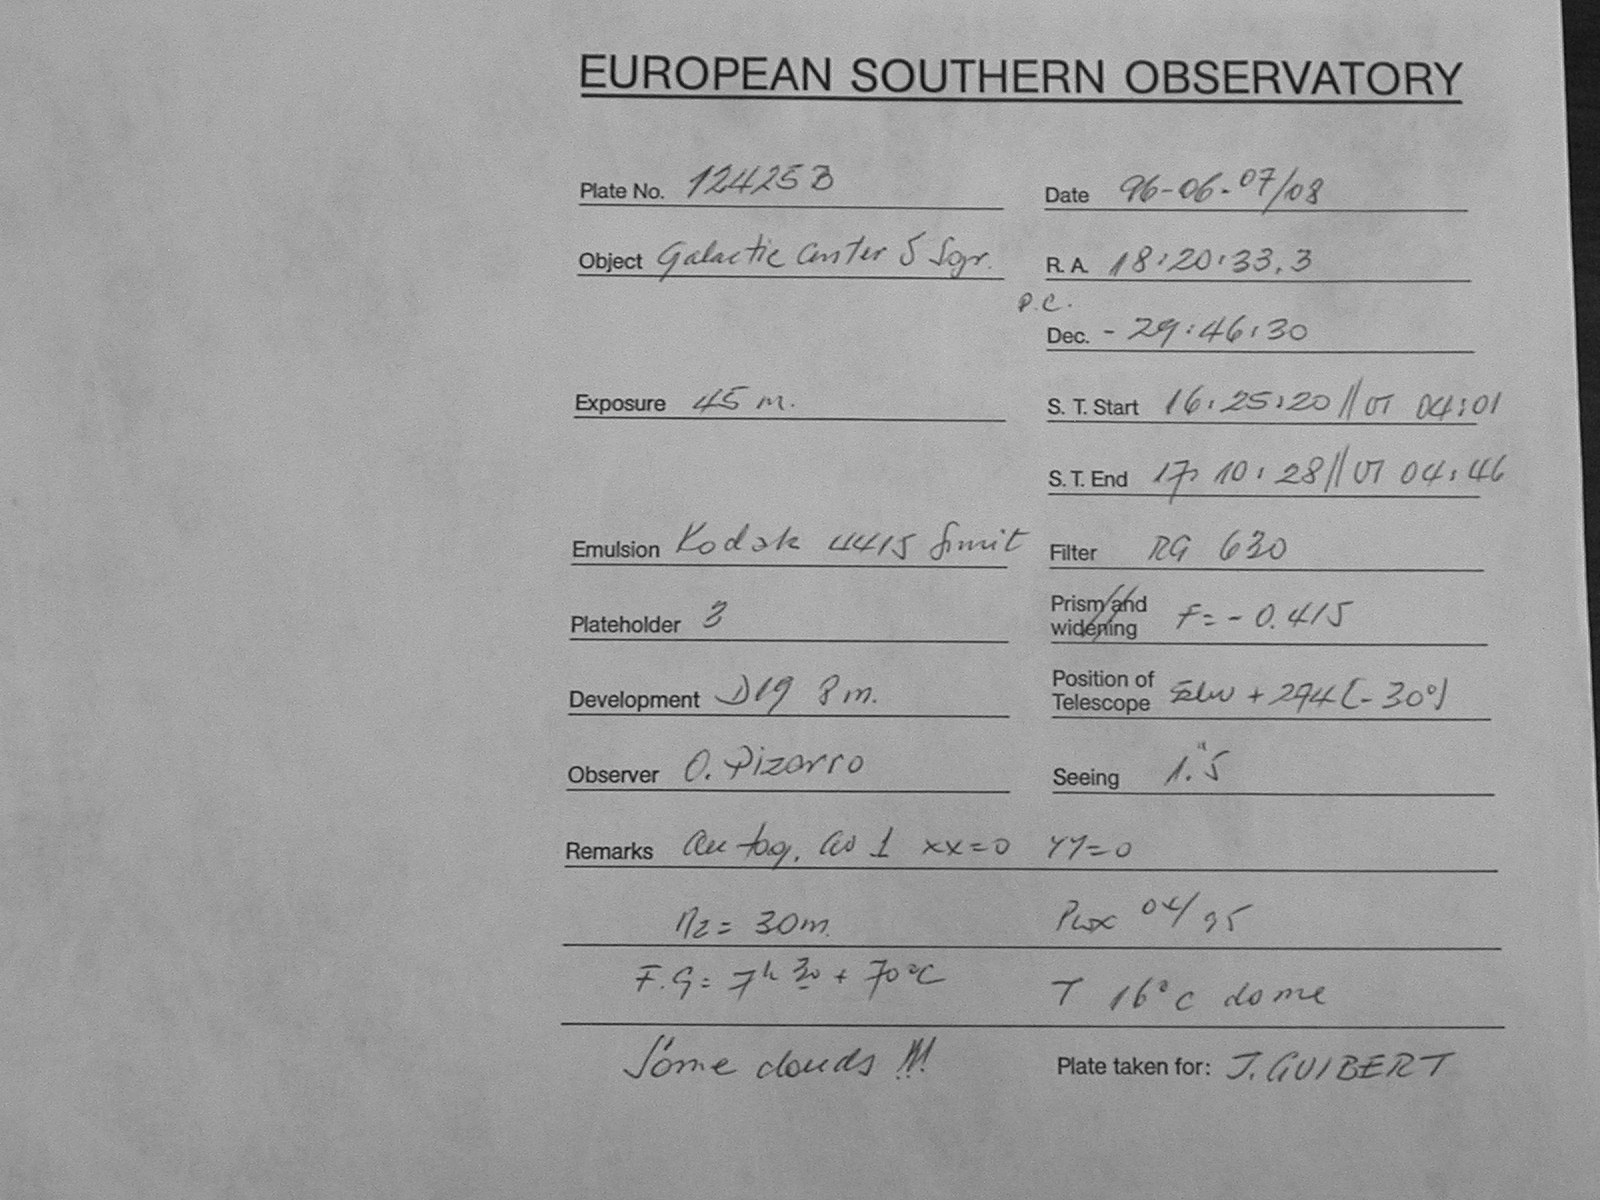 EUROPEAN SOUTHERN OBSERVATORY
Plate No. 12425 B Date 96-06-07/08
Object Galactic Center 5 Sgr. R. A. 18:20:33,3
P.C.
Dec. - 29:46:30
Exposure 45 m. S. T. Start 16:25:20 // UT 04:01
S. T. End 17: 10: 28 // UT 04:46
Emulsion Kodak 4415 Filter RG 630
Plateholder 3 Prism and widening F= - 0.415
Development D19 8 m. Position of Telescope + 294 (- 30°)
Observer O. Pizarro Seeing 1."5
Remarks 1 xx=0 YY=0
N2= 30m. 04/95
F.G= 7h 30 + 70°C T 16°C dome
Some clouds !!! Plate taken for: J. GUIBERT